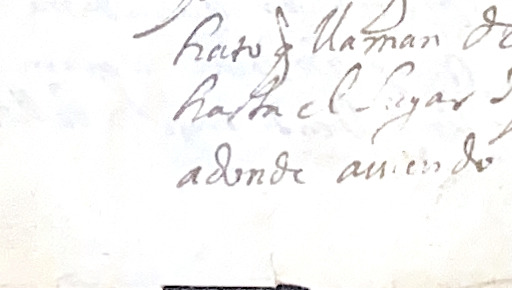 hato q llaman de
hasta el lugar
adonde auiendo